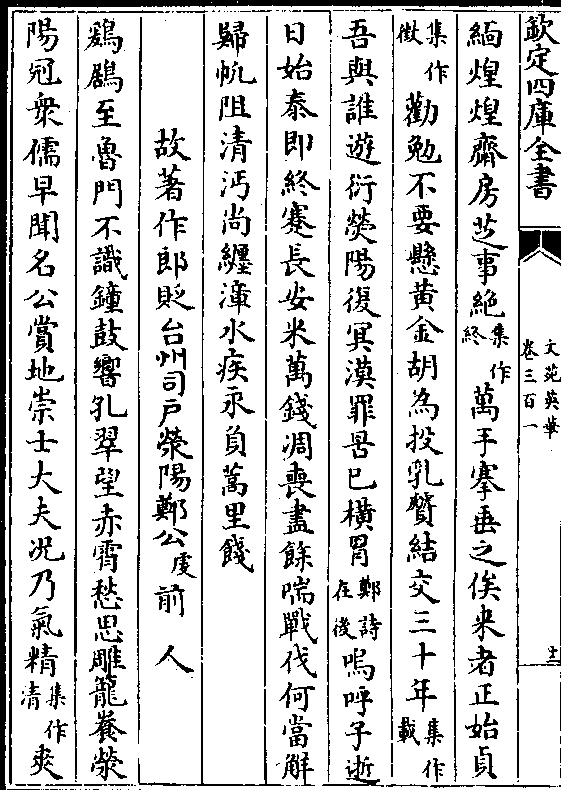 欽定四庫全書
文苑英華
卷三百一
十二
緬煌煌齋房芝事絶集作終萬手搴垂之俟来者正始貞
集作徴勸勉不要懸黄金胡為投乳贙結交三十年集作載
吾與誰遊衍滎陽復冥漠罪罟已横罥鄭詩在後嗚呼子逝
日始泰即終蹇長安米萬錢凋喪盡餘喘戰伐何當解
歸帆阻清沔尚纏漳水疾永負蒿里餞
故著作郎貶台州司户滎陽鄭公䖍前人
鶢鶋至魯門不識鐘鼓響孔翠望赤霄愁思雕籠養滎
陽冠衆儒早聞名公賞地崇士大夫况乃氣精集作清爽